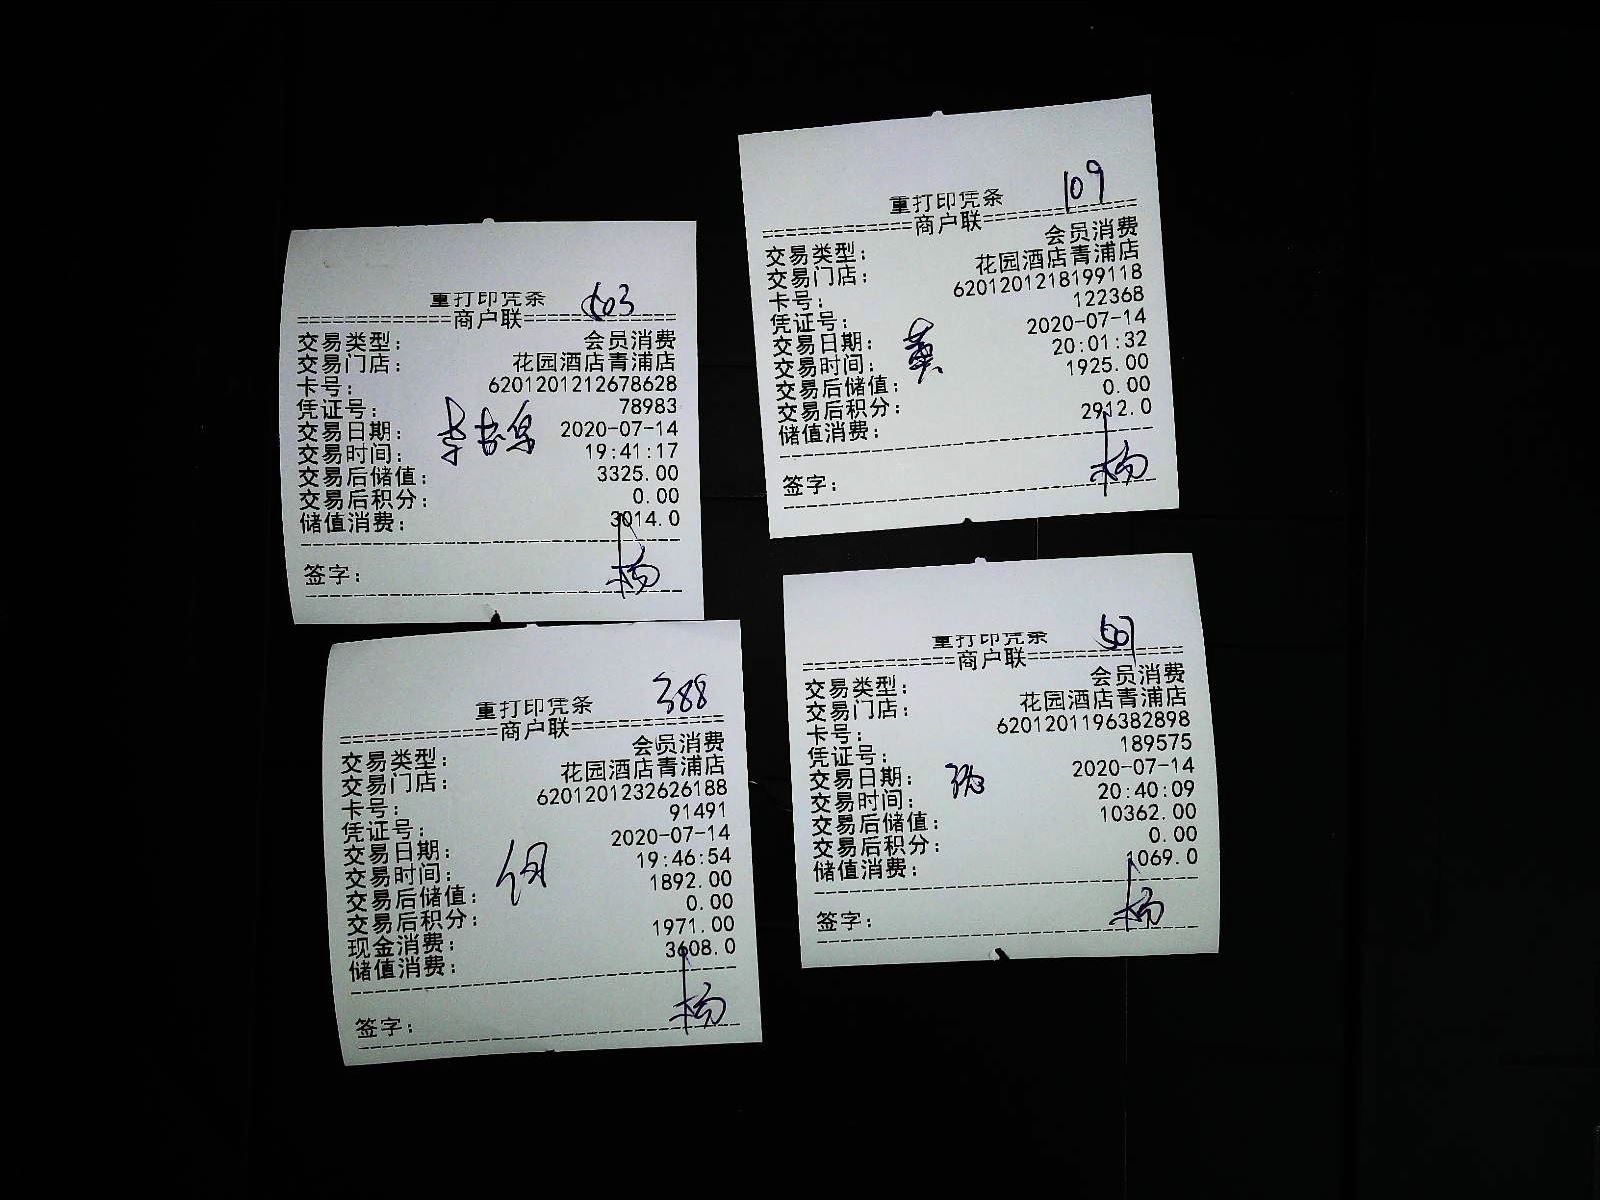 重打印凭条 603
=============商户联=============
交易类型： 会员消费
交易门店： 花园酒店青浦店
卡号： 6201201212678628
凭证号： 78983
交易日期： 2020-07-14
交易时间： 19:41:17
交易后储值： 3325.00
交易后积分： 0.00
储值消费： 3014.0
签字： 杨
重打印凭条 109
=============商户联=============
交易类型： 会员消费
交易门店： 花园酒店青浦店
卡号： 6201201218199118
凭证号： 122368
交易日期： 2020-07-14
交易时间： 20:01:32
交易后储值： 1925.00
交易后积分： 0.00
储值消费： 2912.0
黄
签字： 杨
重打印凭条 388
=============商户联=============
交易类型： 会员消费
交易门店： 花园酒店青浦店
卡号： 6201201232626188
凭证号： 91491
交易日期： 2020-07-14
交易时间： 19:46:54
交易后储值： 1892.00
交易后积分： 0.00
现金消费： 1971.00
储值消费： 3608.0
签字： 杨
重打印凭条 607
=============商户联=============
交易类型： 会员消费
交易门店： 花园酒店青浦店
卡号： 6201201196382898
凭证号： 189575
交易日期： 2020-07-14
交易时间： 20:40:09
交易后储值： 10362.00
交易后积分： 0.00
储值消费： 1069.0
签字： 杨